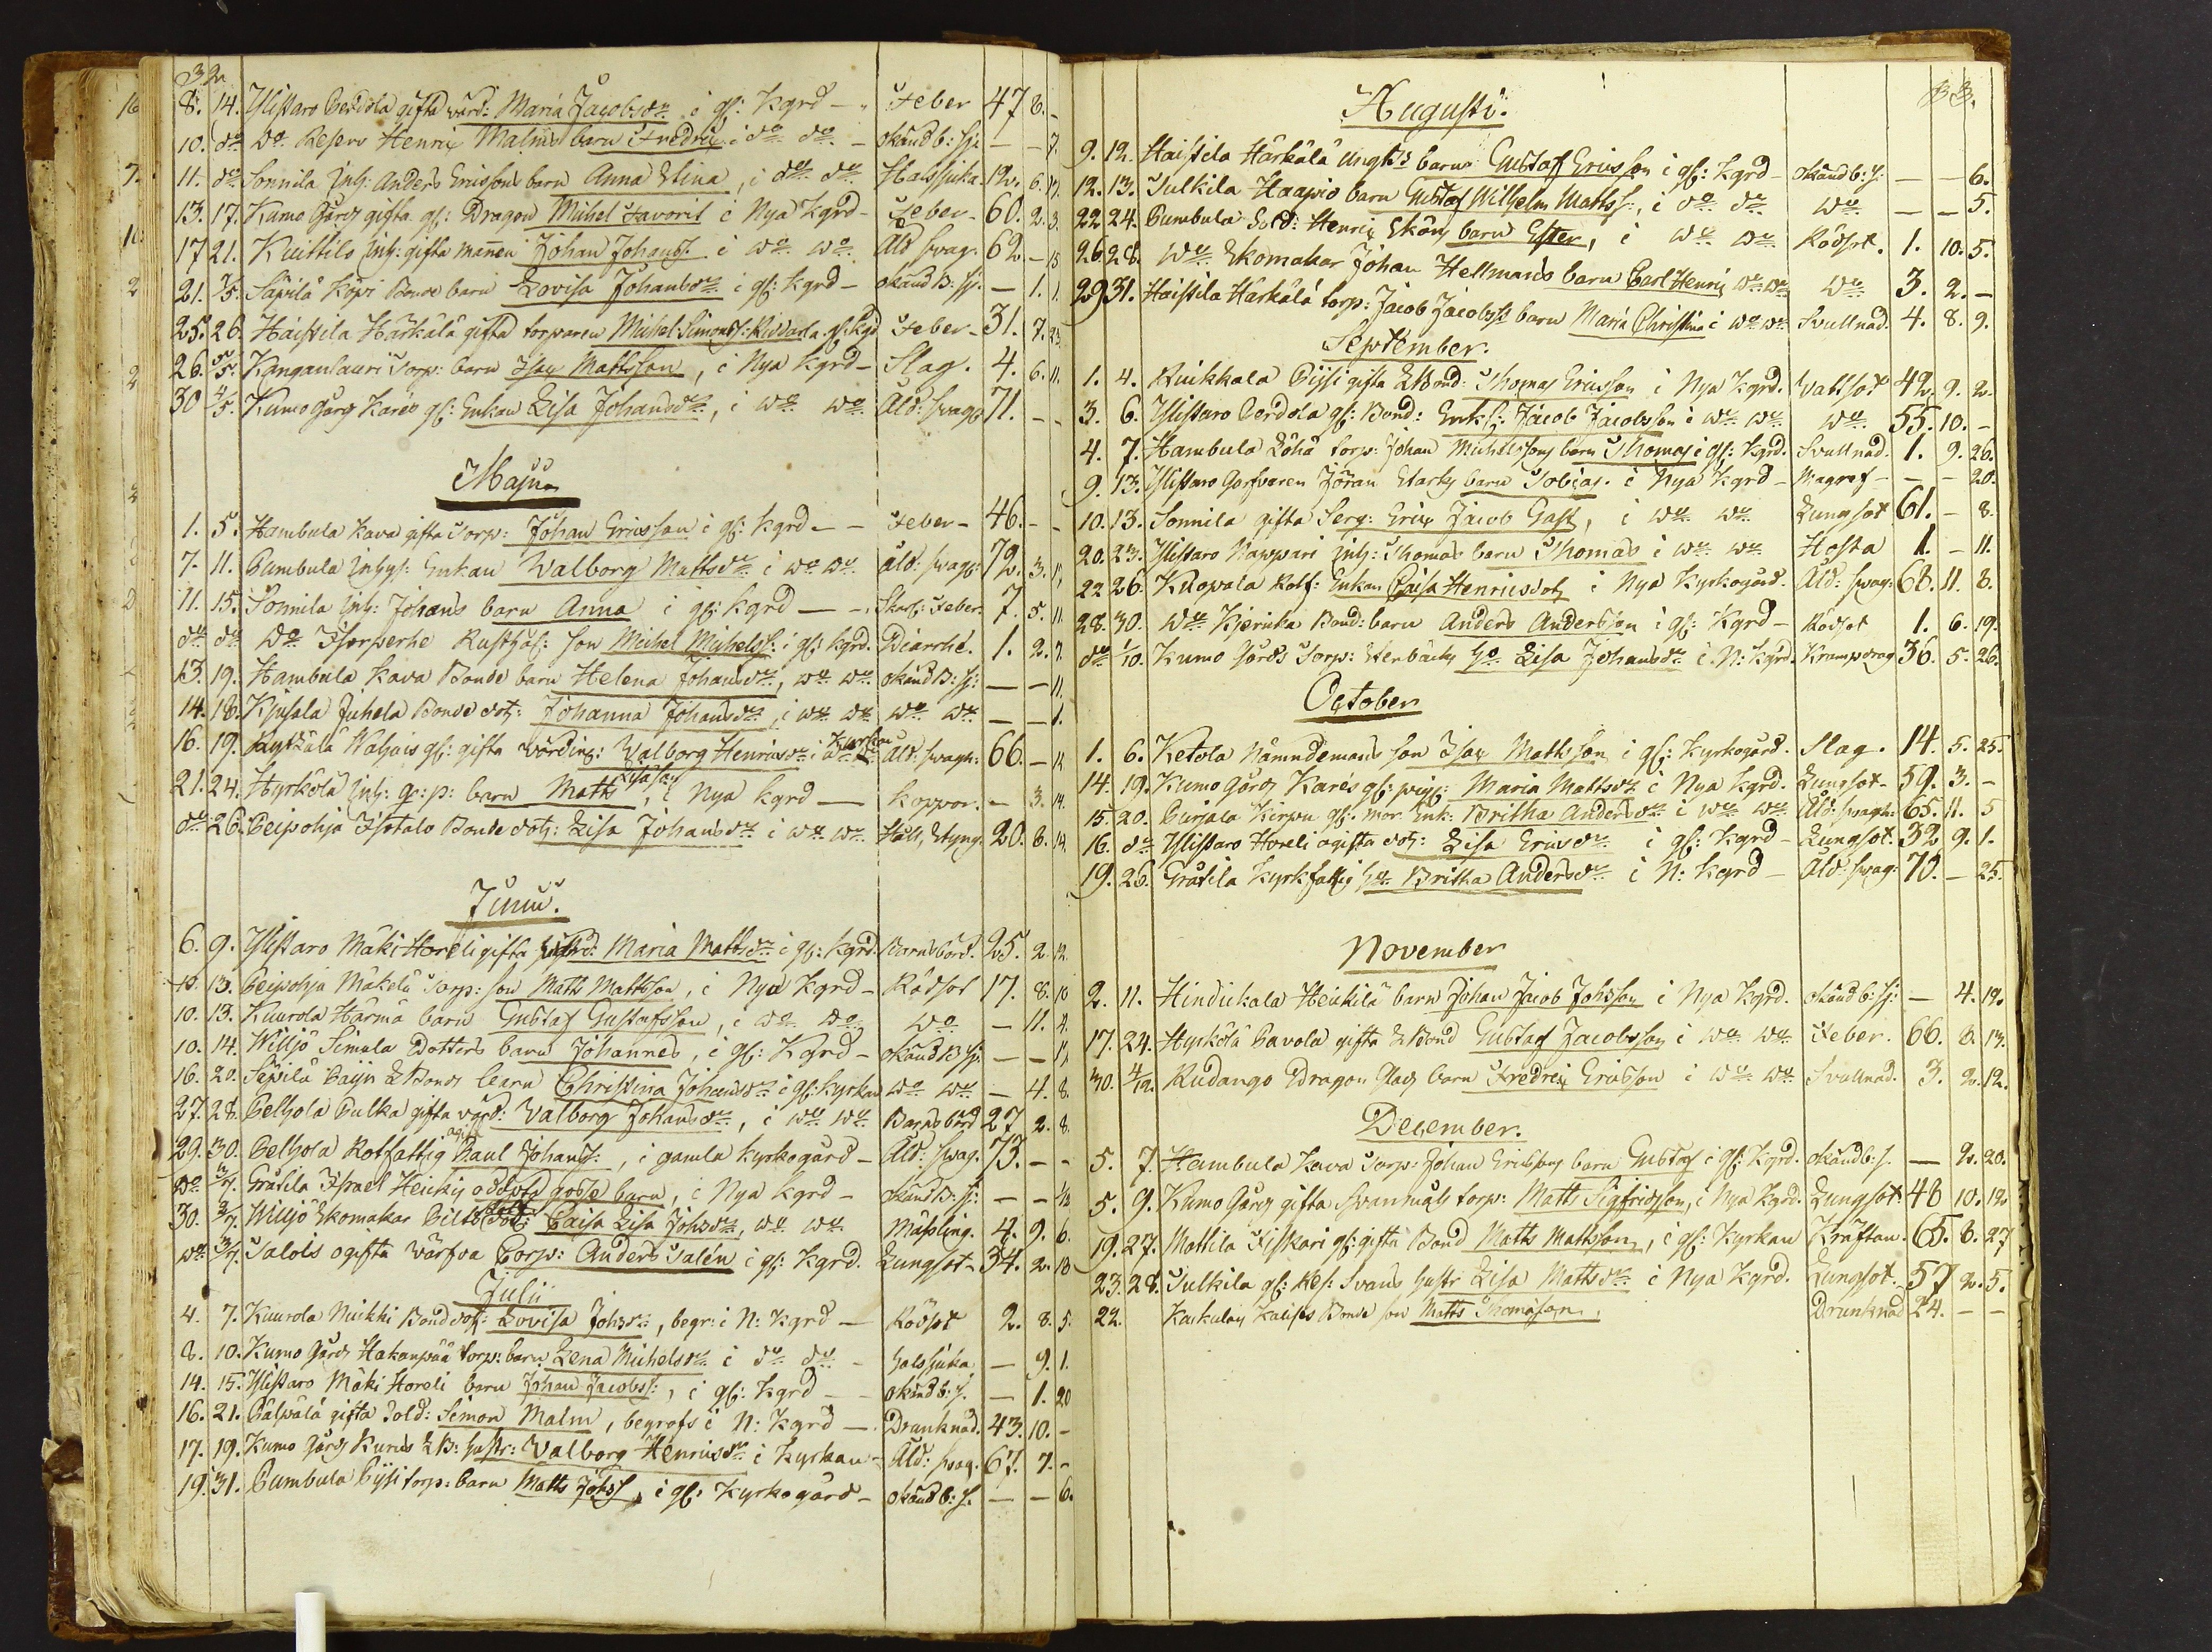 32.
8. 14. Ylistaro Perdola gifta värd: Maria Jacobsdr i gl: Kgrd - Feber 47 8. -
10. do Do Reserv Henric Malms barn Fredric i do do - okänd b: sj: - - 7.
11. do Sonnila Inh: Anders Ericsons barn Anna Stina, i do do Halssjuka. 12. 6. 17.
13. 17. Kumo Gårds gifta gl: Dragon Michel Favorit i Nya Kgrd - Feber - 60. 2. 3.
17 21. Kuittilo Inh: gifta mannen Johan Johanss. i Do Do Åld svagh. 62. - 15
21. 1/5. Säpilä Köpi Bonde barn Lovisa Johansdr i gl: Kgrd - okänd B: sj. - 1. 1.
25. 26. Haistila Härkälä gifta torparen Michel Simonss: gl: Kgrd Feber - 31. 7. 23.
26. 5/5. Kanganlauri Torp: barn Isac Mattsson, i Nya Kgrd - Slag. 4. 6. 11.
30 4/5. Kumo gårg Karés gl: Enkan Lisa Johansdr, i Do Do Åld: svagh 71. - -
Maju
1. 5. Hambula Kava gifta Torp: Johan Ericsson i gl: Kgrd - - Feber - 46. - -
7. 11. Pumbula Inhys: Enkan Walborg Mattsdr i Do Do åld: svagh: 72. 3. 15.
11. 15. Sonnila Inh: Johans barn Anna i gl: kgrd - - Skarl: Feber. 7. 5. 11.
do do Do Isoperhe Rusthål: son Michel Michelss: i gl: kgrd. Diarrhé. 1. 2. 7.
13. 19. Hambula Kava Bonde barn Helena Johansdr, Do Do okänd B: sj: - - 11.
14. 18. Kjusala Juhela Bonde dotr: Johanna Johansdr, i Do Do Do Do - - 1.
16. 19. Kyttälä Waljais gl: gifta värdin: Walborg Henricsdr i kyrkan Åld: svagh: 66. - 12
21. 24. Hyrkölä Inh: q: p: barn Matts Lisason, i Nya kgrd - koppor. - 3. 14.
do 26. Peipohja Isotalo Bonde dotr: Lisa Johansdr i Do Do Håll, Styng. 20. 8. 14.
Junii.
6. 9. Ylistaro Mäki Horeli gifta Maria Mattsdr i gl: kgrd. Barnsbörd. 25. 2. 12.
10. 13. Peipohja Mäkelä Torp: son Matts Mattsson, i Nya Kgrd - Rödsot 17. 8. 10
10. 13. Kuurola Härmä barn Gustaf Gustafsson, i Do Do Do - 11. 4.
10. 14. Willjo Simula Dotters barn Johannes, i gl: Kgrd - okänd B sj: - - 11,
16. 20. Säpilä Paijn L Bonds barn Christina Johansdr i gl: kyrkan Do Do - 4. 8.
27. 28. Pelhola Pulka gifta värd: Walborg Johansdr, i Do Do Barnsbörd 27 2. 8.
29. 30. Pelhola Rotfattig ogi: Paul Johanss:, i gamla kyrkogård - Åld: svag. 73. - -
Do 3/7. Gråtila Israel Heickis oddöpta gosse barn, i Nya kgrd - okänd B: sj: - - 1/2
30. 3/7. Willjo Skomakar dotr: Caisa Lisa Johsdr, Do Do Mässling. 4. 9. 6.
Do 3/7. Talois ogifta Wärfva Corp: Anders Talén i gl: Kgrd. Lungsot - 34. 2. 18
Julii
4. 7. Kuurola Nuikki Bond dotr: Lovisa Johsdr, begr: i N: Kgrd - Rödsot 2. 8. 5.
8. 10. Kumo Gårds Hakanpää torp: barn Lena Michelsdr i do do - halssjuka - 9. 1.
14. 15. Ylistaro Mäki Horeli barn Johan Jacobss:, i gl: Kgrd - - okänd b: s. - 1. 20
16. 21. Pälpälä gifta Sold: Simon Malm, begrofs i N: Kgrd - Drunknad. 43. 10. -
17. 19. Kumo Gårds Kurus L B: hustr: Walborg Henricsdr i kyrkan - Åld: svag. 67. 7. -
19. 31. Pumbula Pysi torp: barn Matts Johss, i gl: kyrkogård - okänd b: s. - - 6.
33.
Augusti.
9. 12. Haistila Härkälä barn Gustaf Ericsson i gl: Kgrd - okänd b: s: - - 6.
12. 13. Tulkila Haapio barn Gustaf Wilhelm Mattss:, i do do Do - - 5.
22 24. Pumbula Sold: Henric Sköns barn Ester, i Do Do Rödsot. 1. 10. 5.
26. 28. Do Skomakar Johan Hellmans barn Carl Henric Do Do Do 3. 2. -
29 31. Haistila Härkälä torp: Jacob Jacobss: barn Maria Christina i Do Do Svullnad. 4. 8. 9.
September.
1. 4. Kuikkala Pijsi gifta L Bond: Thomas Ericsson i Nya Kgrd. Vattsot 42. 9. 2.
3. 6. Ylistaro Perdola gl: Bond: Enkl: Jacob Jacobsson i Do Do Do 55. 10. -
4. 7. Hambula Löhä torp: Johan Michelssons barn Thomas i gl: Kgrd. Svullnad. 1. 9. 26.
9. 13. Ylistaro Garfvaren Jöran Starks barn Tobias. i Nya Kgrd - Magref - - - 20.
10. 13. Sonnila gifta Serg: Eric Jacob Gast, i Do Do Lungsot 61. - 8.
20. 23. Ylistaro Nappari Inh: Thomas barn Thomas i Do Do Hosta 1. - 11.
22 26. Kuopala Rotf: Enkan Caisa Henricsdotr i Nya kyrkogård. Åld: svag: 68. 11. 8.
28. 30. Do Kjerika Bond: barn Anders Andersson i gl: Kgrd - Rödsot 1. 6. 19.
do 1/10. Kumo Gårds Torp: Stenbäcks ho Lisa Johansdr i N: kgrd. Krampdrag 36. 5. 26.
October
1. 6. Ketola Nämndemans son Isac Mattsson i gl: kyrkogård. Slag. 14. 5. 25.
14. 19. Kumo Gårds Karés gl: pig: Maria Mattsdr i Nya Kgrd. Lungsot - 59. 3. -
15. 20. Purjala Kirpu gl: mor Enk: Britha Andersdr i Do Do Åld: svagh: 65. 11. 5
16. do Ylistaro Horeli ogifta dotr: Lisa Ericsdr i gl: Kgrd - Lungsot. 32. 9. 1.
19. 26. Gråtila kyrkfattig ho Britha Andersdr i N: Kgrd - Åld: svag: 70. - 25.
November
2. 11. Hindickala Heickilä barn Johan Jacob Johsson i Nya Kgrd. okänd b: sj: - 4. 12.
17. 24. Hyrkölä Pavola gifta L Bond Gustaf Jacobsson i Do Do Feber. 66. 8. 13.
30. 4/12. Rudango Dragon Glads barn Fredric Ericsson i Do Do Svullnad. 3. 2. 12.
December.
5. 7. Hambula Kava Torp: Johan Ericssons barn Gustaf i gl: Kgrd. okänd b: s. - 2. 20.
5. 9. Kumo Gårds gifta torp: Matts Sigfridsson, i Nya Kgrd. Lungsot. 48 10. 12
19. 27. Mattila Fiskari gl: gifta Bond Matts Mattsson, i gl: Kyrkan Kräftan. 65. 8. 27
23. 28. Tulkila gl: Svans hustr Lisa Mattsdr i Nya Kgrd. Lungsot. 57 2. 5.
22. Kaukulais Kalises Bonde son Matts Thomasson. Drunknad 24. - -